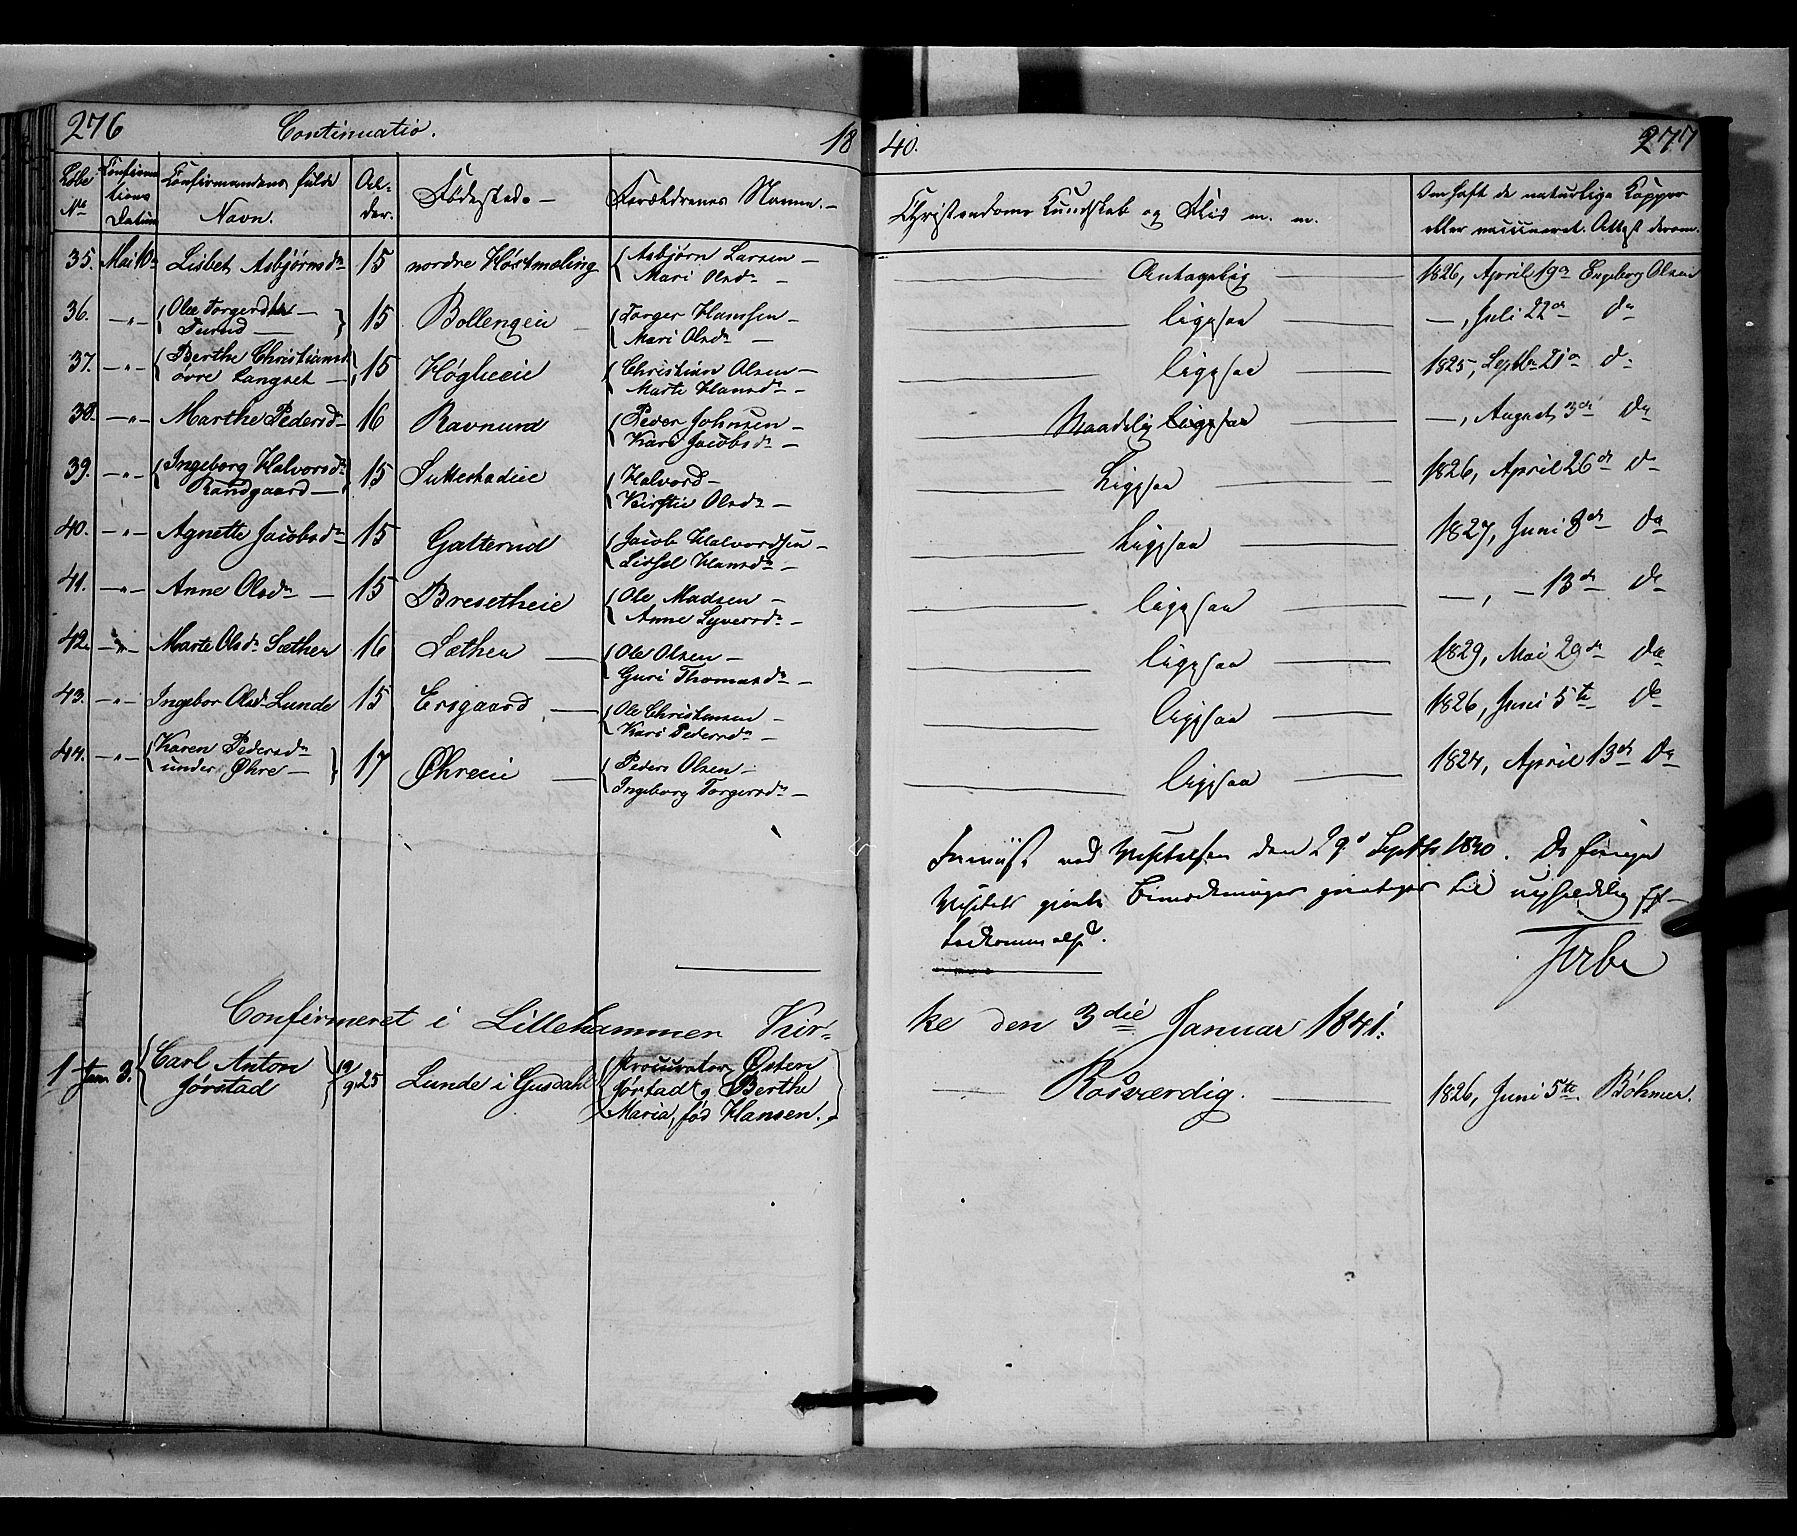 276 Continuatio. 18 40. 277
Løbe No Confirmations Datum Confirmandens fulde Navn. Alder. Fødested. Forældrenes Navne. Christendoms Kundskab og Flid m. m. Om havt de naturlige Kopper eller vaccineret. Attest derom.
35. Mai 10de Lisbet Asbjørnsdr 15 nordre Høstmæling Asbjørn Larsen Mari Olsdr Antagelig 1826, April 19de Engeborg Olsen
36. -"- Olea Torgersdtr 15 Bollengeie Torger Hansen Mari Olsdr ligesaa -, Juli 22de do
37. -"- Berthe Christiansd øvre Langset 15 Høglieeie Christian Olsen Marte Hansdr ligesaa 1825, Septbr 21de do
38. -"- Marthe Pedersd 16 Ravnund Peder Johnsen Kari Jacobsdr Maadelig ligesaa -, August 3die do
39. -"- Ingeborg Halvorsdr Randgaard 15 Suttestadeie Halvord Kirstie Olsdr Ligesaa 1826, April 26de do
40. -"- Agnette Jacobsdr 15 Gatterud Jacob Halvordsen Lissel Hansdr Ligesaa 1827, Juni 8de do
41. -"- Anne Olsdr 15 Bresetheie Ole Madsen Anne Syversdr ligesaa -, - 13de do
42. -"- Marte Olsdr Sæther 16 Sæther Ole Olsen Guri Thomasdr ligesaa 1829, Mai 29de do
43. -"- Ingebor Olsdr Lunde 15 Ersgaard Ole Christensen Kari Pedersdr ligesaa 1826, Juni 5te do
44. -"- Karen Pedersdr under Øhre 17 Øhreeie Peder Olsen Ingeborg Torgersdr ligesaa 1824, April 13de do
ved Visitatsen den 29de Septbr 1840. De forrige
Visitats til
Confirmeret i Lillehammer Kirke den 3die Januar 1841.
1 Jan. 3. Carl Anton Jørstad 19/9 25 Lunde i Gusdahl Procurator Østen Jørstad og Berthe Maria, fød Hansen. Rosværdig. 1826, Juni 5te Bøhmer.